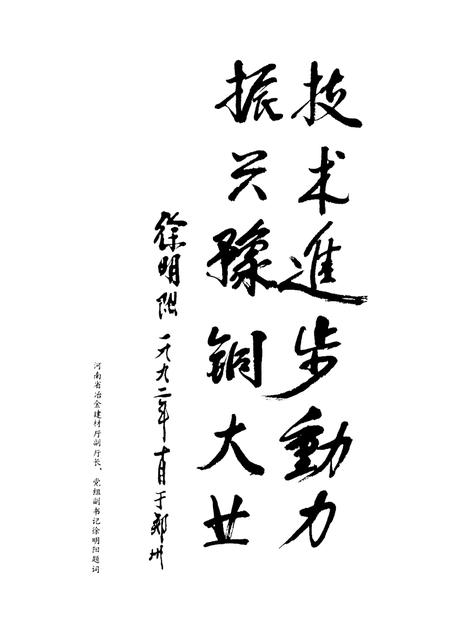 技术進步動力
振兴豫铜大业
徐明阳 一九九二年十月于郑州
河南省冶金建材厅副厅长、党组副书记徐明阳题词